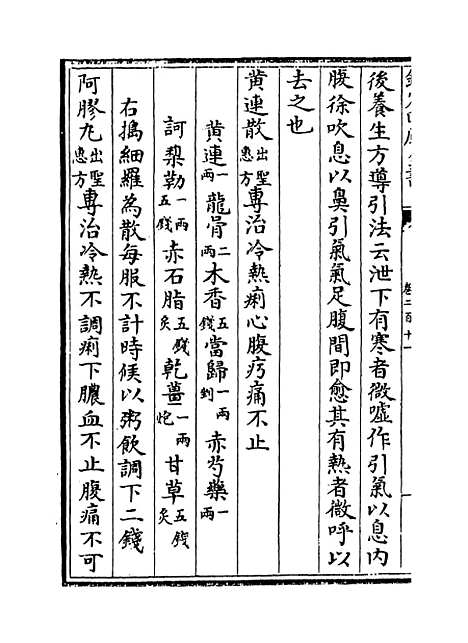 欽定四庫全書
卷二百十一
後養生方導引法云泄下有寒者微嘘作引氣以息内
腹徐吹息以鼻引氣氣足腹間即愈其有熱者微呼以
去之也
黄連散出聖惠方專治冷熱痢心腹㽱痛不止
黄連一兩龍骨二兩木香五錢當歸一兩剉赤芍藥一兩
訶梨勒一兩五錢赤石脂五錢炙乾薑一兩炮甘草五錢炙
右搗細羅為散每服不計時候以粥飲調下二錢
阿膠丸出聖惠方專治冷熱不調痢下膿血不止腹痛不可